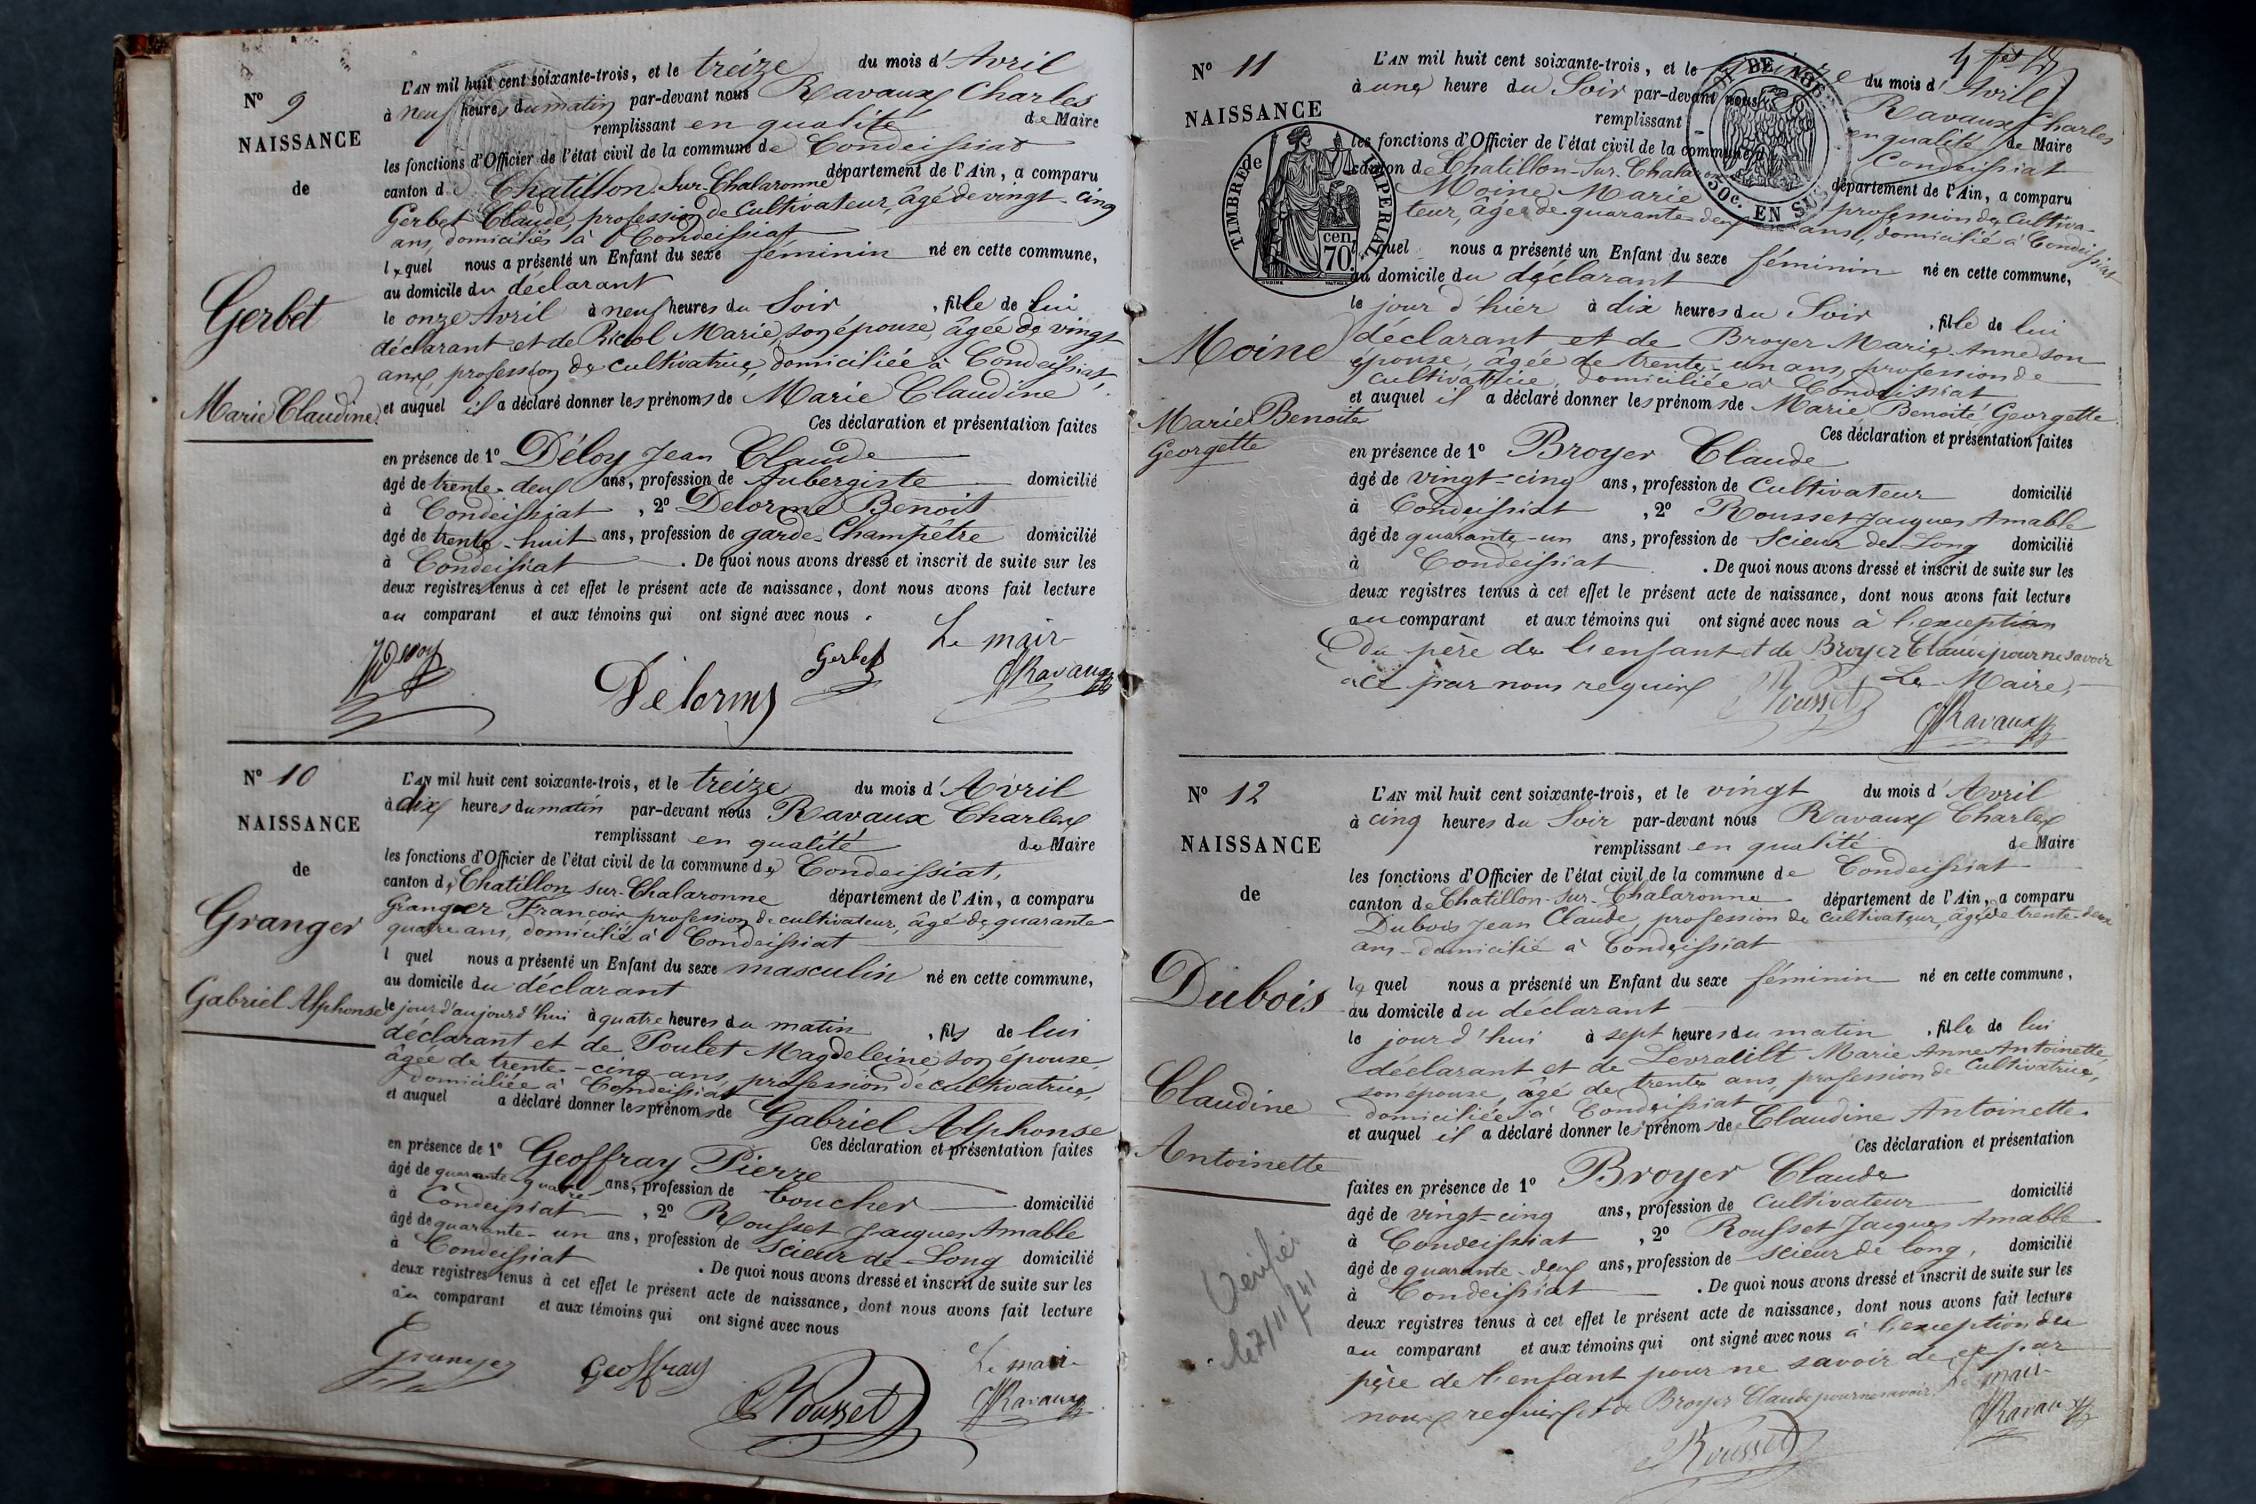 N° 9
NAISSANCE
de
Gerbet
Marie Claudine
L'AN mil huit cent soixante-trois, et le treize du mois d'Avril
à neuf heures du matin par-devant nous Ravaux Charles
remplissant en qualité de Maire
les fonctions d'Officier de l'état civil de la commune de Condeissiat
canton de Chatillon-sur-Chalaronne département de l'Ain, a comparu
Gerbet Claude, profession de cultivateur, âgé de vingt-cinq
ans, domiciliés à Condeissiat
lequel nous a présenté un Enfant du sexe féminin né en cette commune,
au domicile du déclarant
le onze Avril à neuf heures du Soir, fille de lui
déclarant et de Marie, son épouse, âgée de vingt
ans, profession de cultivatrice, domiciliée à Condeissiat,
et auquel il a déclaré donner les prénoms de Marie Claudine
Ces déclaration et présentation faites
en présence de 1° Déloy Jean Claude
âgé de trente-deux ans, profession de Aubergiste domicilié
à Condeissiat, 2° Delorme Benoit
âgé de trente-huit ans, profession de garde-Champêtre domicilié
à Condeissiat. De quoi nous avons dressé et inscrit de suite sur les
deux registres tenus à cet effet le présent acte de naissance, dont nous avons fait lecture
au comparant et aux témoins qui ont signé avec nous.
Le maire
Gerbet
Delorme
Ravaux
N° 10
NAISSANCE
de
Granger
Gabriel Alphonse
L'AN mil huit cent soixante-trois, et le treize du mois d'Avril
à dix heures du matin par-devant nous Ravaux Charles
remplissant en qualité de Maire
les fonctions d'Officier de l'état civil de la commune de Condeissiat,
canton de Chatillon-sur-Chalaronne département de l'Ain, a comparu
Granger François profession de cultivateur, âgé de quarante-
quatre ans, domicilié à Condeissiat
l quel nous a présenté un Enfant du sexe masculin né en cette commune,
au domicile du déclarant
le jour d'aujourd'hui à quatre heures du matin, fils de lui
déclarant et de Poulet Magdeleine son épouse,
âgée de trente-cinq ans, profession de cultivatrice,
domiciliée à Condeissiat
et auquel a déclaré donner les prénoms de Gabriel Alphonse
Ces déclaration et présentation faites
en présence de 1° Geoffray Pierre
âgé de quarante-quatre ans, profession de boucher domicilié
à Condeissiat, 2° Rousset Jacques Amable
âgé de quarante-un ans, profession de Scieur de Long domicilié
à Condeissiat. De quoi nous avons dressé et inscrit de suite sur les
deux registres tenus à cet effet le présent acte de naissance, dont nous avons fait lecture
au comparant et aux témoins qui ont signé avec nous
Granger
Geoffray
Rousset
Le maire
Ravaux
N° 11
NAISSANCE
TIMBRE IMPERIAL
70 cen
50c. EN SUS
Moine
Marie Benoite
Georgette
L'AN mil huit cent soixante-trois, et le du mois d'Avril
à une heure du Soir par-devant nous Ravaux Charles
remplissant en qualité de Maire
les fonctions d'Officier de l'état civil de la commune Condeissiat
canton de Chatillon-Sur-Chalaronne département de l'Ain, a comparu
Moine Marie profession de Cultiva-
teur, âgé de quarante-deux ans, domicilié à Condeissiat
quel nous a présenté un Enfant du sexe féminin né en cette commune,
au domicile du déclarant
le jour d'hier à dix heures du Soir, fille de lui
déclarant et de Broyer Marie-Anne son
épouse, âgée de trente-un ans, profession de
cultivatrice, domiciliée à Condeissiat
et auquel il a déclaré donner les prénoms de Marie Benoite Georgette
Ces déclaration et présentation faites
en présence de 1° Broyer Claude
âgé de vingt-cinq ans, profession de Cultivateur domicilié
à Condeissiat, 2° Rousset Jacques Amable
âgé de quarante-un ans, profession de Scieur de Long domicilié
à Condeissiat. De quoi nous avons dressé et inscrit de suite sur les
deux registres tenus à cet effet le présent acte de naissance, dont nous avons fait lecture
au comparant et aux témoins qui ont signé avec nous à l'exception
du père de l'enfant et de Broyer Claude pour ne savoir
ce par nous requis
Rousset
Le Maire,
Ravaux
N° 12
NAISSANCE
de
Dubois
Claudine
Antoinette
Vérifié
L'AN mil huit cent soixante-trois, et le vingt du mois d'Avril
à cinq heures du Soir par-devant nous Ravaux Charles
remplissant en qualité de Maire
les fonctions d'Officier de l'état civil de la commune de Condeissiat
canton de Chatillon-Sur-Chalaronne département de l'Ain, a comparu
Dubois Jean Claude, profession de cultivateur, âgé de trente-deux
ans domicilié à Condeissiat
lequel nous a présenté un Enfant du sexe féminin né en cette commune,
au domicile du déclarant
le jourd'hui à sept heures du matin, fille de lui
déclarant et de Marie Anne Antoinette,
son épouse, âgé de trente ans, profession de Cultivatrice,
domiciliée à Condeissiat
et auquel il a déclaré donner les prénoms de Claudine Antoinette.
Ces déclaration et présentation
faites en présence de 1° Broyer Claude
âgé de vingt-cinq ans, profession de cultivateur domicilié
à Condeissiat, 2° Rousset Jacques Amable
âgé de quarante-deux ans, profession de scieur de long, domicilié
à Condeissiat. De quoi nous avons dressé et inscrit de suite sur les
deux registres tenus à cet effet le présent acte de naissance, dont nous avons fait lecture
au comparant et aux témoins qui ont signé avec nous à l'exception du
père de l'enfant pour ne savoir de ce par
nous requis et de Broyer Claude pour ne savoir. Le maire
Ravaux
Rousset